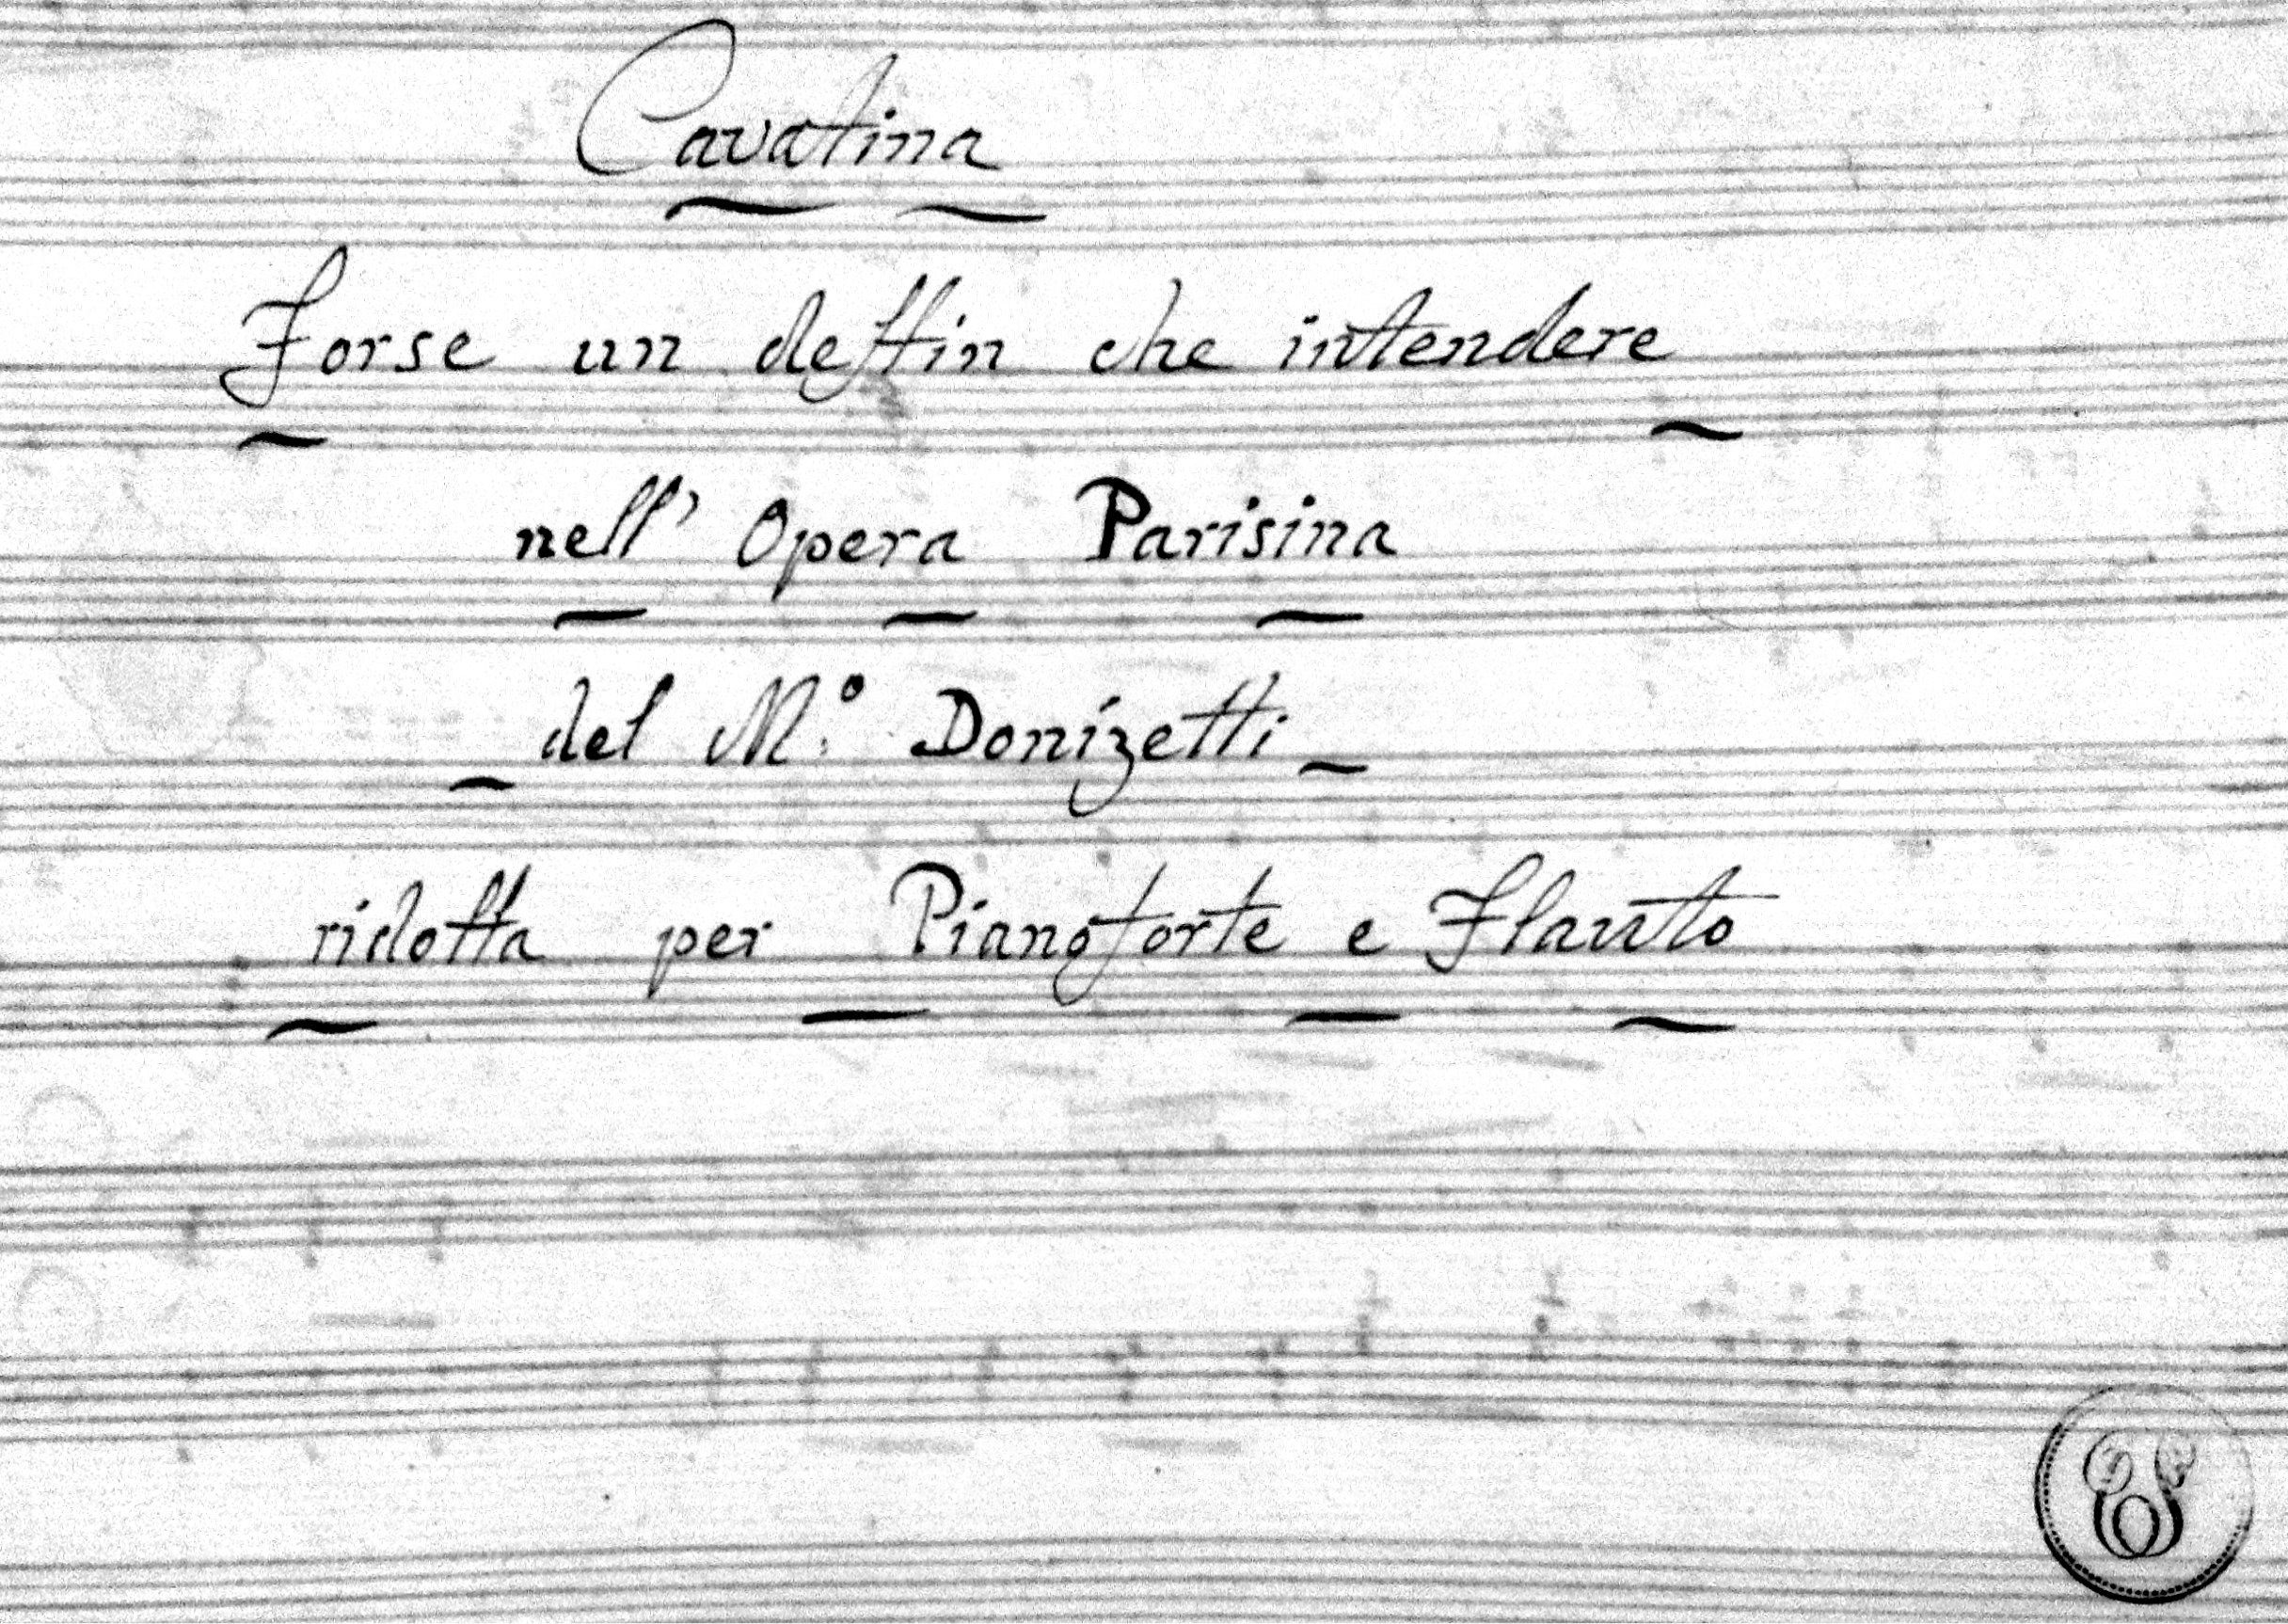 Cavatina
Forse un deſtin che intendere
nell' Opera Parisina
del M.º Donizetti
ridotta per Pianoforte e Flauto